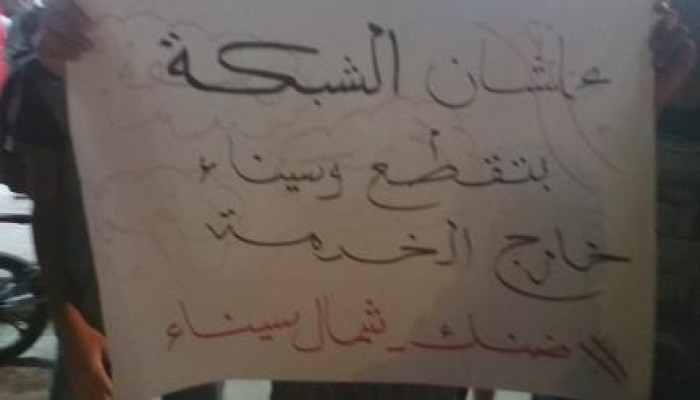 علشان الشبكة
بتقطع وسيناء
خارج الخدمة
# ضنك_شمال سيناء